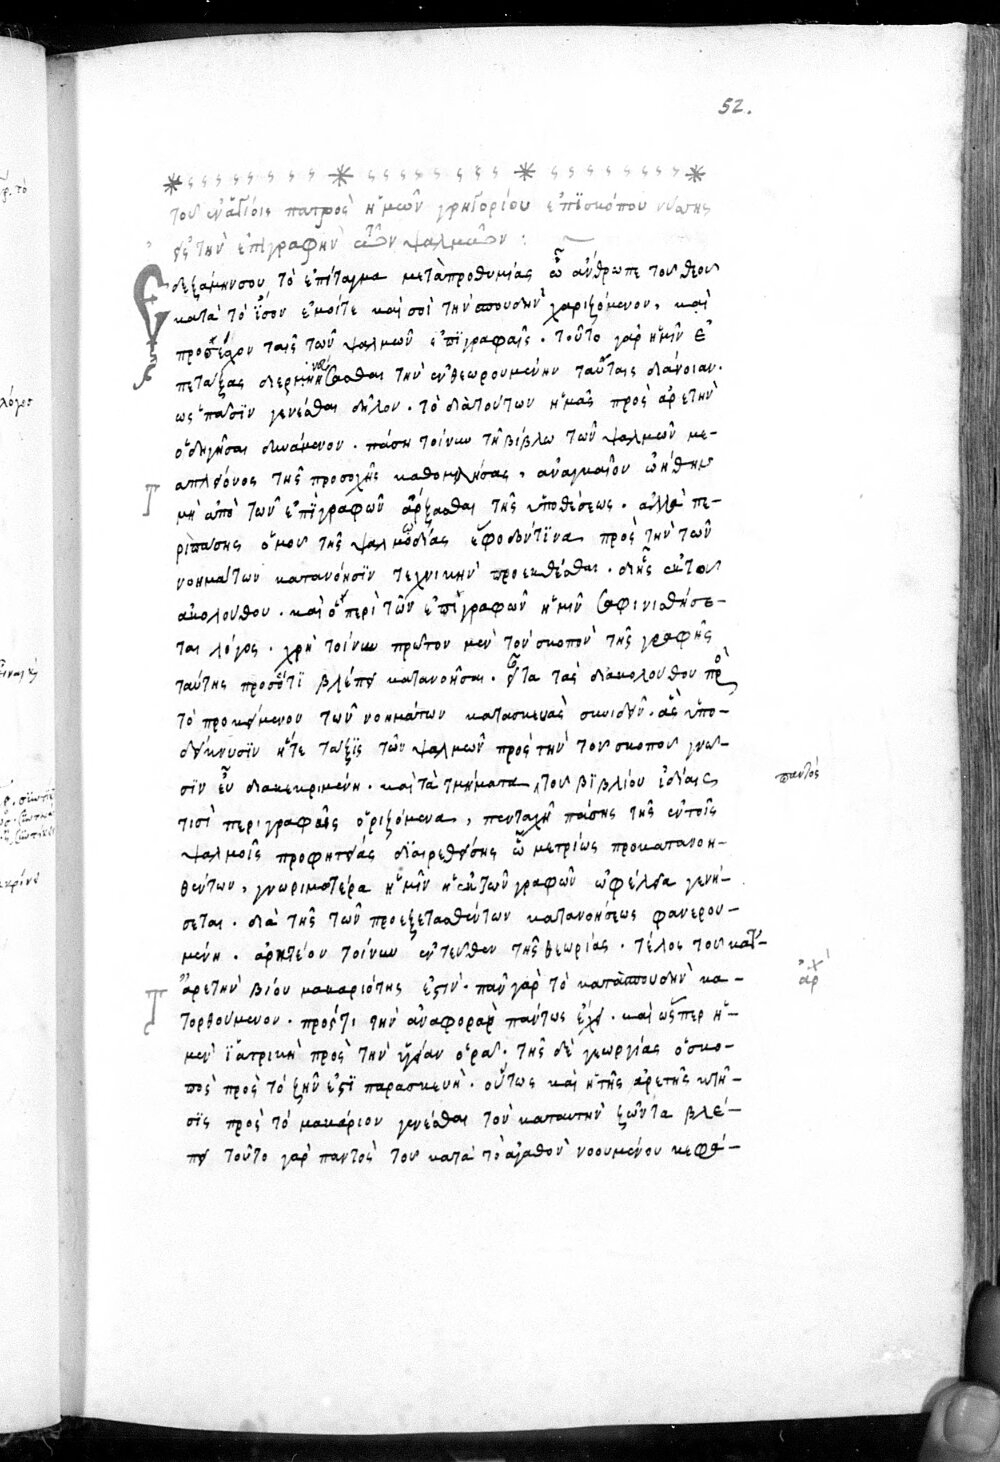 52.
τοῦ ἐν ἁγίοις πατρὸς ἡμῶν γρηγορίου ἐπϊσκόπου νύσης
εἰς τὴν ἐπιγραφὴν τῶν ψαλμῶν :
Ἐδεξάμην σου τὸ ἐπίταγμα μετὰ προθυμίας ὦ ἄνθρωπε τοῦ θεοῦ
κατὰ τὸ ἴσον ἐμοί τε καὶ σοὶ τὴν σπουδὴν χαριζόμενον, καὶ
προσέσχον ταῖς τῶν ψαλμῶν ἐπϊγραφαῖς. τοῦτο γὰρ ἡμῖν ἐ
πέταξας διερμηνεύσασθαι τὴν ἐνθεωρουμένην ταύταις διάνοιαν.
ὡς πᾶσϊν γενέσθαι δῆλον. τὸ διὰ τούτων ἡμᾶς πρὸς ἀρετὴν
ὁδηγῆσαι δυνάμενον. πάση τοίνυν τῆ βίβλω τῶν ψαλμῶν με-
πλείονος τῆς προσοχῆς καθομιλήσας, ἀναγκαῖον ὠήθην
μὴ ἀπὸ τῶν ἐπϊγραφῶν ἄρξασθαι τῆς ὑποθέσεως. ἀλλὰ πε-
ρὶ πάσης ὁμοῦ τῆς ψαλμωδίας ἔφοδόν τϊνα πρὸς τὴν τῶν
νοημάτων κατανόησϊν τεχνικὴν προεκθέσθαι. δι' ἧς ἐκ τοῦ
ἀκολούθου. καὶ ὁ περὶ τῶν ἐπϊγραφῶν ἡμῖν σαφηνισθήσε-
ται λόγος. χρὴ τοίνυν πρῶτον μὲν τὸν σκοπὸν τῆς γραφῆς
ταύτης πρὸς ὅ τϊ βλέπει κατανοῆσαι. εἶτα τὰς διακολούθου πρὸς
τὸ προκείμενον τῶν νοημάτων κατασκευὰς συνιδεῖν. ἃς ὑπο-
δείκνυσϊν ἥ τε τάξϊς τῶν ψαλμῶν πρὸς τὴν τοῦ σκοποῦ γνῶ-
σϊν εὖ διακεκριμένη. καὶ τὰ τμήματα τοῦ βϊβλίου ἰδίαις
παντὸς
τισὶ περιγραφαῖς ὁριζόμενα, πενταχῆ πάσης τῆς ἐν τοῖς
ψαλμοῖς προφητείας διαιρεθείσης ὧν μετρίως προκατανοη-
θέντων, γνωριμοτέρα ἡμῖν ἡ ἐκ τῶν γραφῶν ὠφέλεια γενή-
σεται. διὰ τῆς τῶν προεξετασθέντων κατανοήσεως φανερου-
μένη. ἀρκτέον τοίνυν ἐντεῦθεν τῆς θεωρίας. τέλος τοῦ κατ'
ἀρετὴν βίου μακαριότης ἐστίν. πᾶν γὰρ τὸ κατὰ σπουδὴν κα-
ἀρχ
τορθούμενον. πρός τι τὴν ἀναφορὰν πάντως ἔχει. καὶ ὥσπερ ἡ
μὲν ἰατρικὴ πρὸς τὴν ὑγείαν ὁρᾶ. τῆς δὲ γεωργίας ὁ σκο-
πὸς πρὸς τὸ ζῆν ἐστϊ παρασκευή. οὕτως καὶ ἡ τῆς ἀρετῆς κτῆ-
σϊς πρὸς τὸ μακάριον γενέσθαι τὸν κατ' αὐτὴν ζῶντα βλέ-
πει τοῦτο γὰρ παντὸς τοῦ κατὰ τὸ ἀγαθὸν νοουμένου κεφά-